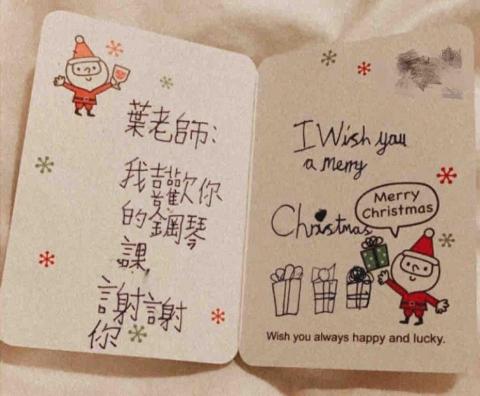 葉老師:
我喜歡你
的鋼琴
課,
謝謝
你
I Wish you
a merry
Christmas
Merry
Christmas
Wish you always happy and lucky.